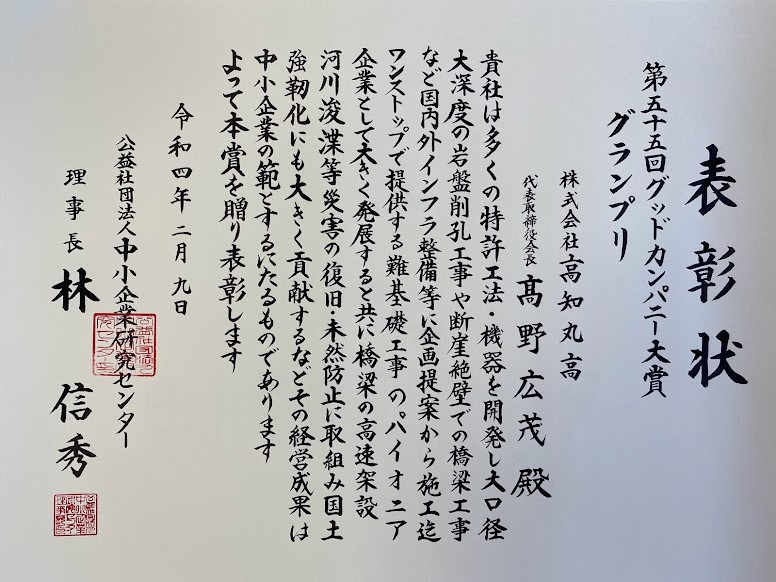 表彰状
第五十五回グッドカンパニー大賞
グランプリ
株式会社高知丸高
代表取締役会長 髙野広茂 殿
貴社は多くの特許工法・機器を開発し大口径
大深度の岩盤削孔工事や断崖絶壁での橋梁工事
など国内外インフラ整備等に企画提案から施工迄
ワンストップで提供する難基礎工事のパイオニア
企業として大きく発展すると共に橋梁の高速架設
河川浚渫等災害の復旧・未然防止に取組み国土
強靭化にも大きく貢献するなどその経営成果は
中小企業の範とするにたるものであります
よって本賞を贈り表彰します
令和四年二月九日
公益社団法人中小企業研究センター
理事長 林 信秀